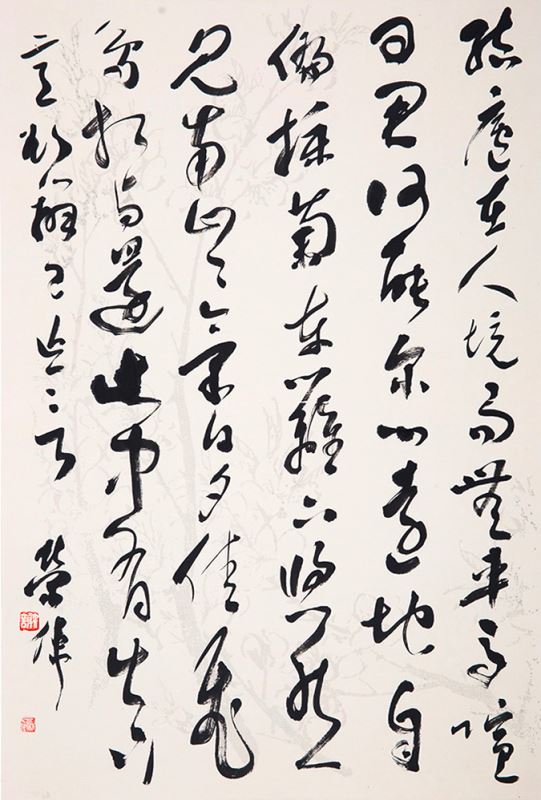 結廬在人境而無車馬喧
問君何能爾心遠地自
偏採菊東籬下悠然
見南山々氣日夕佳飛
鳥相與還此中有真
意欲辨已忘言
榮偉